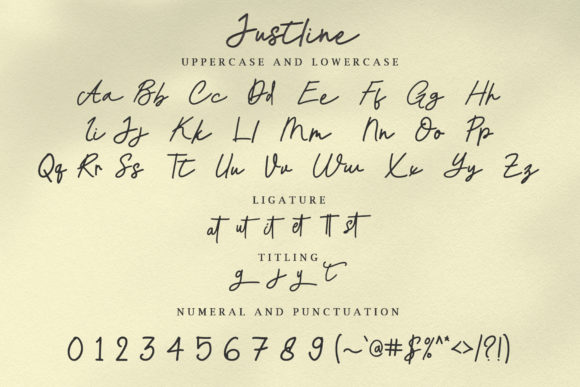 Justline
UPPERCASE AND LOWERCASE
Aa Bb Cc Dd Ee Ff Gg Hh
Ii Jj Kk Ll Mm Nn Oo Pp
Qq Rr Ss Tt Uu Vv Ww Xx Yy Zz
LIGATURE
at ut it et tt st
TITLING
g j y t
NUMERAL AND PUNCTUATION
0 1 2 3 4 5 6 7 8 9 (~`@#$%^*<>/?!)